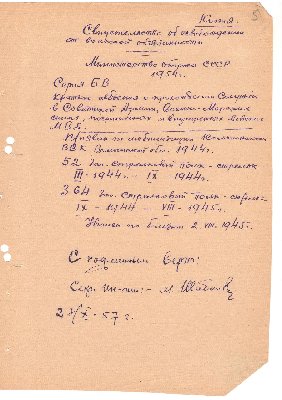 Копия. 5
Свидетельство об освобождении
от воинской обязанности
Министерство обороны СССР
1954г.
Серия БВ
Краткие сведения о прохождении Службы
в Советской Армии, Военно-Морских
силах, пограничных и внутренних войсках
М.В.Д.
Призван по мобилизации
ВСК обл. 1944г.
52 зап. стрелковый полк - стрелок
III - 1944г. IX - 1944г.
364 зап. стрелковый полк -
IX - 1944 VIII - 1945г.
Уволен по болезни 2 VIII-1945г.
С подлинным верно:
Секр. ин-та: - М.
27/X - 57 г.